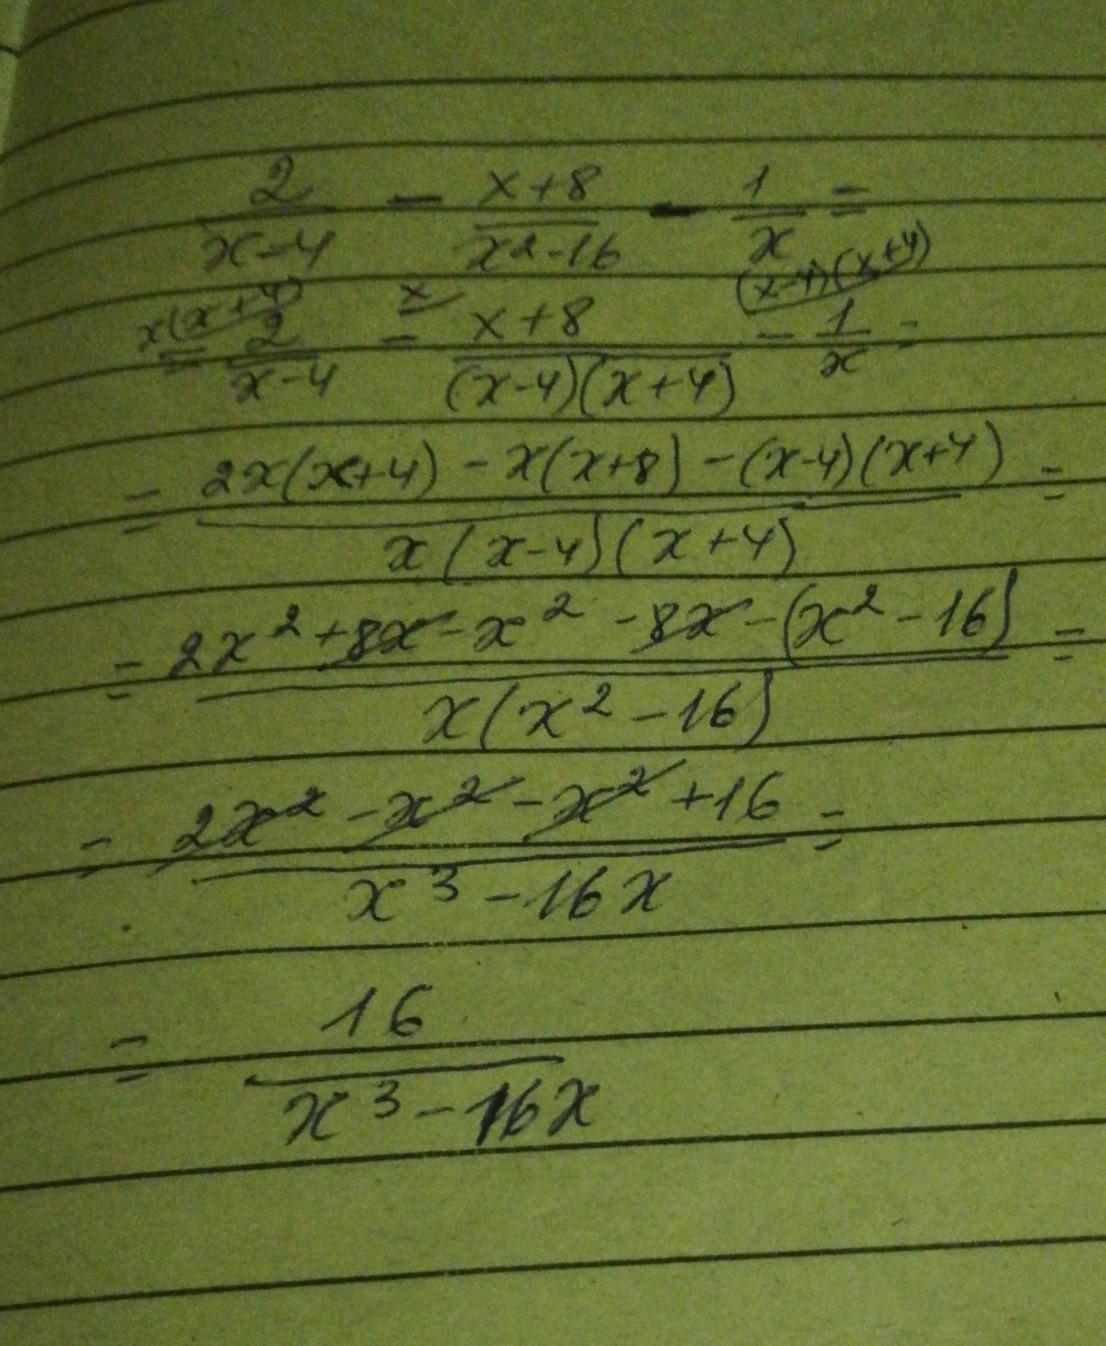 2/(x-4) - (x+8)/(x²-16) - 1/x =
= 2/(x-4) ^(x(x+4)) - (x+8)/((x-4)(x+4)) ^(x) - 1/x ^((x-4)(x+4)) =
= (2x(x+4) - x(x+8) - (x-4)(x+4))/(x(x-4)(x+4)) =
= (2x² + 8x - x² - 8x - (x² - 16))/(x(x² - 16)) =
= (2x² - x² - x² + 16)/(x³ - 16x) =
= 16/(x³ - 16x)